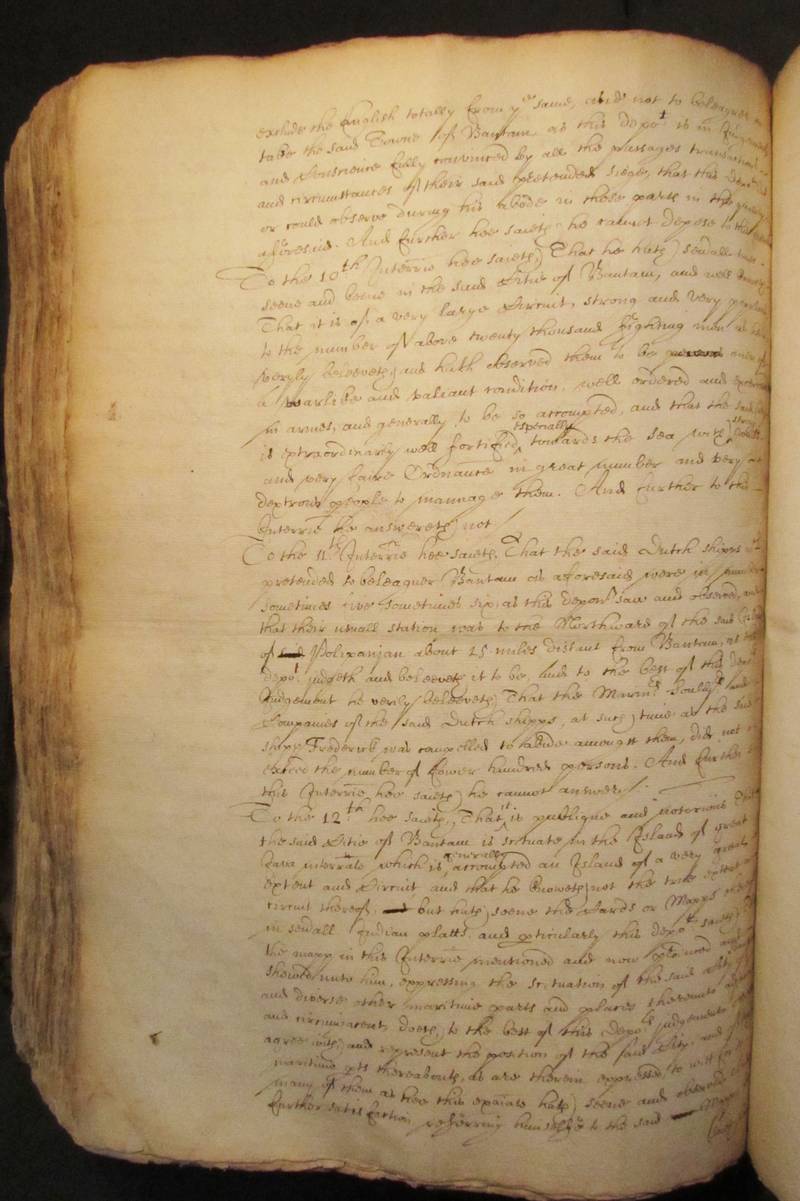 exclude the English totally from y^e same, and not to beleaguer or
take the said Towne of Bantam as this depo^t is in Judgement
and Conscience fully convinced by all the passages transactions
and circumstances of their said pretended siege, that this depo^t did
or could observe during his abode in those parts in the
aforesaid. And further hee saieth he cannot depose
To the 10^th Interrie hee saieth, That he hath severall times
seene and beene in the said Citie of Bantam, and well knoweth
That it is of a very large Circuit, strong and very populous
to the number of above twenty thousand fighting men as hee
verily beleeveth, and hath observed them to be men of
a warlike and valiant condition, well ordered and
in armes, and generally to be so accompted, and that the said
is extraordinarily well fortified, especially towards the sea with strong
and very faire Ordnance in great number and very
dextrous people to mannage them. And further to this
Interrie he answereth not /
To the 11^th Interrie hee saieth, That the said Dutch shipps w^ch
pretended to beleaguer Bantam as aforesaid were in number
sometimes five sometimes six, as this depon^t saw and observed, and
that their usuall station was to the Northward of the said
of Polixanjan about 25 miles distant from Bantam, as this
depo^t judgeth and beleeveth it to be, And to the best of this depo^ts
Judgement he verily beleeveth, That the Marin^rs Souldj^rs and
Companies of the said Dutch shipps, at such time as the said
shipp Frederick was compelled to abide amongst them, did not
exceed the number of fower hundred persons. And further to
this Interrie hee saieth he cannot answer /
To the 12^th hee saieth, That it is publique and notorious That
the said Citie of Bantam is scituate in the Island of great
Java interrate which is generally accompted an Island of a very greate
extent and Circuit and that he knoweth not the true extent or
circuit thereof, but hath seene the Cards or Mapps
in severall Indian platts, and pticularly this depo^t saieth,
the mapp in this Interrie mentioned and now pduced and
shewed unto him, expressing the scituation of the said Citie
and diverse other maritime parts and places thereunto
and circumjacent, doeth, to the best of this depo^ts judgement
agree with, and represent the position of the said City, and
maritime pts thereabouts, as are therein expressed, to witt so
many of them as hee this exaiate hath seene and observed
further satisfaction referring himselfe to the said Mapp